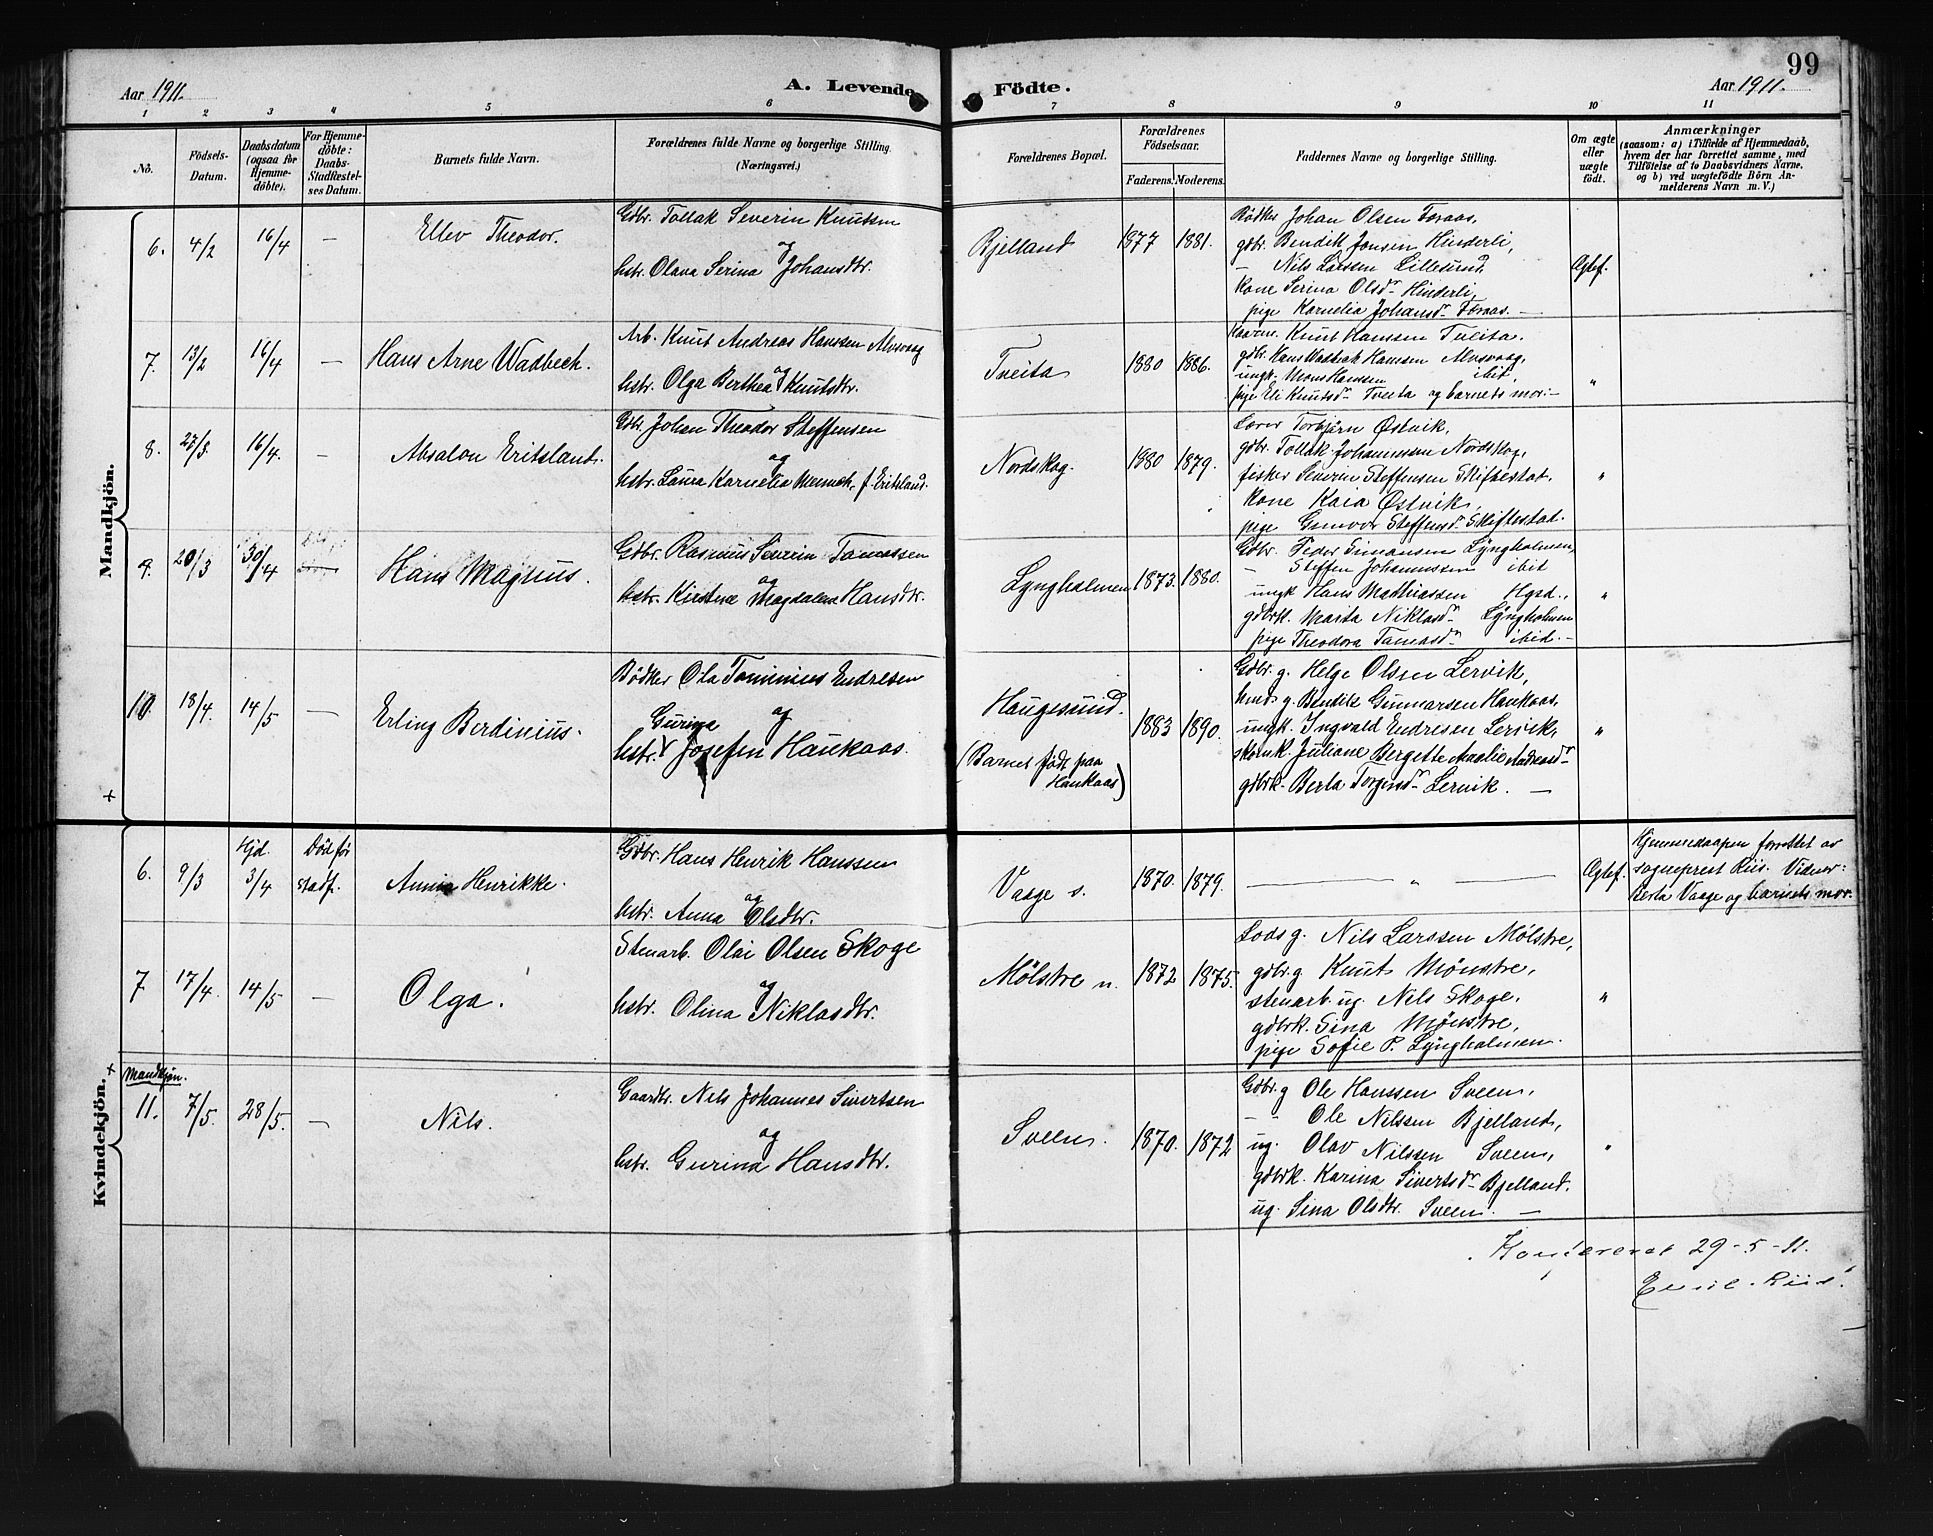 99
Aar 1911.
A. Levende Födte.
Aar 1911.
1 2 3 4 5 6 7 8 9 10 11
No.
Födsels-
Datum.
Daabsdatum
(ogsaa for
Hjemme-
döbte).
For Hjemme-
döbte:
Daabs-
Stadfæstel-
ses Datum.
Barnets fulde Navn.
Forældrenes fulde Navne og borgerlige Stilling.
(Næringsvei.)
Forældrenes Bopæl.
Forældrenes
Födselsaar.
Faderens. Moderens.
Faddernes Navne og borgerlige Stilling.
Om ægte
eller
uægte
født.
Anmærkninger
(saasom: a) i Tilfælde af Hjemmedaab,
hvem der har forrettet samme, med
Tilföielse af to Daabsvidners Navne,
og b) ved uægtefödte Börn An-
melderens Navn m. V.)
Mandkjön.
6. 4/2 16/4 —
Ellev Theodor.
Gdbr. Tollak Severin Knutsen
og
hstr. Olava Serina Johansdtr.
Bjelland 1877 1881.
Bødker Johan Olsen Foraas,
gdbr. Bendik Jonsen Hinderli,
— Nils Larsen Lillesund,
kone Serina Olsdr Hinderli,
pige Kornelia Johansdr Foraas. —
Egtef.
7. 13/2 16/4 —
Hans Arne Wadbech.
Arb. Knut Andreas Hanssen Alvsvaag
og
hstr. Olga Berthea Knutsdtr.
Tveita 1880 1886.
Kaarm. Knut Hanssen Tveita.
gdbr. Hans Wadbech Hanssen Alvsvaag,
ungk. Mons Hanssen ibit,
pige Eli Knutsdr Tveita og barnets mor. —
"
8. 27/3. 16/4. —
Absalon Eritsland.
Gdb. Johan Theodor Steffensen
og
hstr. Laura Kornelia f. Eritsland.
Nordskog. 1880 1879.
Lærer Torbjørn Østvik,
gdbr. Tollak Johannessen Nordskog,
fisker Severin Steffensen Skiftestat,
kone Kaia Østvik,
pige Gunvor Steffensdr Skiftestat.
"
9. 20/3 30/4
Hans Magnus.
Gdbr. Rasmus Severin Tomassen
og
hstr. Kirstine Magdalena Hansdtr.
Lyngholmen 1873. 1880.
Gdbr. Peder Simonsen Lyngholmen,
— Steffen Johannessen ibit
ungk Hans Mathiassen Hgsd.,
gdbrk. Marta Niklasdr Lyngholmen
pige Theodora Tomasdr ibid. —
"
10. 18/4. 14/5 —
Erling Berdinius.
Bödker Ola Tominius Endresen
Gurina og
hstr. V Josefin Haukaas.
Haugesund.
(Barnet født paa
Haukaas)
1883 1890.
Gdbr. g. Helge Olsen Lervik,
g. Bendik Gunnarsen Haukaas,
ungk. Ingvald Endresen Lervik,
Juliane Bergitte Amalie Andreasdr
gdbrk. Berta Torgersdr Lervik. —
"
+
6. 9/3
Hjd.
3/4
Død før
stadf.
Anna Henrikke.
Gdbr. Hans Henrik Hanssen
og
hstr. Anna Olsdtr.
Vaage s. 1870. 1879.
— " —
Egtef.
Hjemmedaapen forrettet av
sogneprest Riis. Vidner:
Berta Vaage og barnets mor.
7 17/4. 14/5 —
Olga.
Stenarb. Olai Olsen Skoge
og
hstr. Olina Niklasdtr.
Mölstre n. 1872 1875.
Lods g. Nils Larssen Mölstre,
gdbr. g Knut Mönstre,
stenarb. ug. Nils Skoge.
gdbrk. Sina Mönstre,
pige Sofie P. Lyngholmen.
"
Kvindekjön. +
Mandkjøn.
11. 7/5. 28/5. —
Nils.
Gaardbr. Nils Johannes Sivertsen
og
hstr. Gurina Hansdtr.
Sveen. 1870. 1872
Gdbr. g Ole Hanssen Sveen,
— " — Ole Nilssen Bjelland,
ug. Olav Nilssen Sveen,
gdbrk. Karina Sivertsdr Bjelland.
ug. Sina Olsdtr. Sveen. —
"
Konfereret 29-5-11.
Emil Riis.